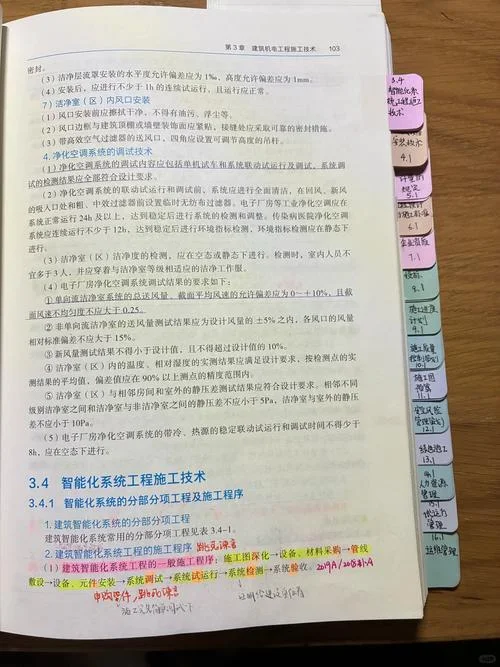 第3章 建筑机电工程施工技术 103
密封。
（3）洁净层流罩安装的水平度允许偏差应为1‰，高度允许偏差应为1mm。
（4）安装后，应进行不少于1h的连续试运行，且运行应正常。
7）洁净室（区）内风口安装
（1）风口安装前应擦拭干净，不得有油污、浮尘等。
（2）风口边框与建筑顶棚或墙壁装饰面应紧贴，接缝处应采取可靠的密封措施。
（3）带高效空气过滤器的送风口，四角应设置可调节高度的吊杆。
4. 净化空调系统的调试技术
（1）净化空调系统的调试内容应包括单机试车和系统联动试运行及调试，系统调
试的检测结果应全部符合设计要求。
（2）净化空调系统的联动试运行和调试前，系统应进行全面清洁，在回风、新风
的吸入口处和粗、中效过滤器前设置临时无纺布过滤器。电子厂房等工业净化空调应在
系统正常运行24h及以上，达到稳定后进行系统的检测和调整。传染病医院净化空调
系统应连续运行不少于12h，达到稳定后进行环境指标检测，环境指标检测应在静态下
进行。
（3）净化室（区）洁净度的检测，应在空态或静态下进行。检测时，室内人员不
宜多于3人，并应穿着与洁净室等级相适应的洁净工作服。
（4）电子厂房净化空调系统调试结果的要求如下：
①单向流洁净室系统的总送风量、截面平均风速的允许偏差应为0～+10%，且截
面风速不均匀度不应大于0.25。
② 非单向流洁净室的送风量测试结果应为设计风量的±5%之内，各风口的风量
相对标准偏差不应大于15%。
③ 新风量测试结果不得小于设计值，且不得超过设计值的10%。
④ 洁净室（区）内的温度、相对湿度的实测结果应满足设计要求，按检测点的实
测结果的平均值，偏差值应在90%以上测点的精度范围内。
⑤ 洁净室（区）与相邻房间和室外的静压差测试结果应符合设计要求。相邻不同
级别洁净室之间和洁净室与非洁净室之间的静压差不应小于5Pa，洁净室与室外的静压
差不应小于10Pa。
（5）电子厂房净化空调系统的带冷、热源的稳定联动试运行和调试时间不得少于
8h，应在空态下进行。
3.4 智能化系统工程施工技术
3.4.1 智能化系统的分部分项工程及施工程序
1. 建筑智能化系统的分部分项工程
建筑智能化系统常用的分部分项工程见表3.4-1。
2. 建筑智能化系统工程的施工程序
（1）建筑智能化系统工程的一般施工程序：施工图深化→设备、材料采购→管线
敷设→设备、元件安装→系统调试→系统试运行→系统检测→系统验收。
3.4
智能化系
统工程施工
技术
4.1
5.1
6.1
企业资质
7.1
8.1
施工进度
计划
9.1
施工质量
10.1
11.1
12.1
绿色施工
13.1
人力资源
管理
管理
16.1
运维管理